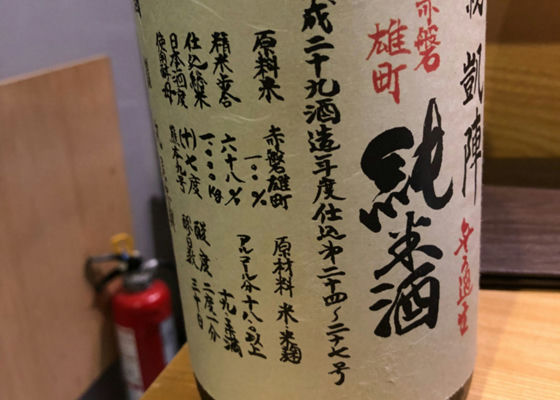 凱陣
赤磐
雄町
純米酒
成二十九酒造年度仕込第二十四〜二十七号
原料米 赤磐雄町
一〇〇%
精米歩合 六十八%
仕込総米 一〇〇〇kg
日本酒度 (+)七度
使用酵母 熊本九号
原材料 米・米麹
アルコール分十八度以上
酸度 二度一分
醪日数 三十日